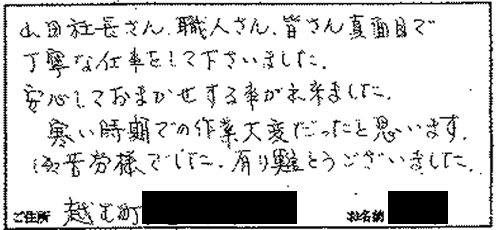 山田社長さん、職人さん、皆さん真面目で
丁寧な仕事をして下さいました。
安心しておまかせする事が出来ました。
寒い時期での作業大変だったと思います。
御苦労様でした。有り難とうございました。
ご住所 越生町 お名前